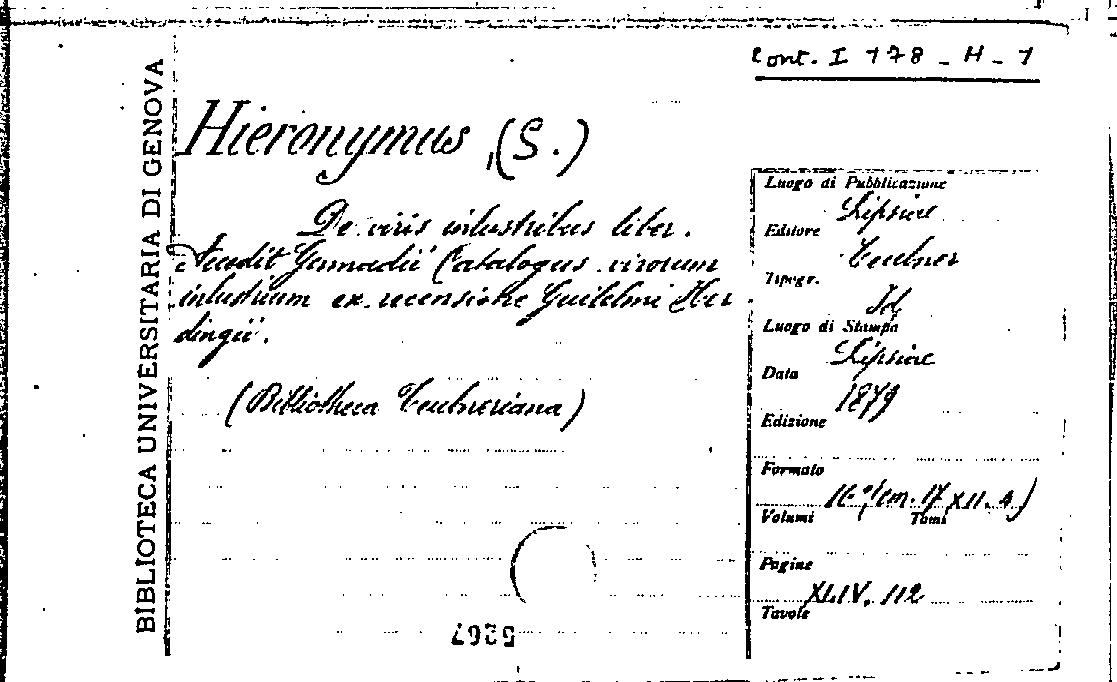 Cont. I 178 - H - 1
BIBLIOTECA UNIVERSITARIA DI GENOVA
Hieronymus (S.)
De viris inlustribus liber.
Accedit Gennadii Catalogus virorum
inlustrium ex recensione Guilelmi Her
dingii.
(Bibliotheca Teubneriana)
Luogo di Pubblicazione
Lipsiae
Editore
Teubner
Tipogr.
Id
Luogo di Stampa
Lipsiae
Data
1879
Edizione
Formato
16.° (cm. 17 XII. )
Volumi Tomi
Pagine
XLIV, 112
Tavole